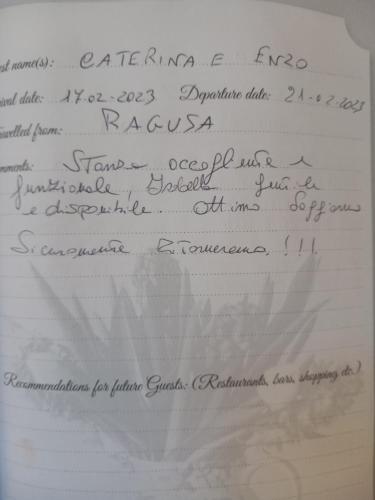 est name(s): CATERINA E ENZO
ival date: 17.02.2023 Departure date: 21.02.2023
avelled from: RAGUSA
mments: Stanza accogliente e
funzionale, Isabella gentile
e disponibile. Ottimo soggiorno
Sicuramente Ritorneremo. !!!
Recommendations for future Guests: (Restaurants, bars, shopping etc.)